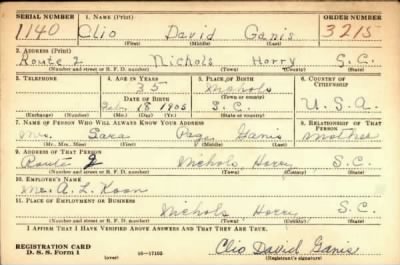 SERIAL NUMBER 1. NAME (Print) ORDER NUMBER
1140 Clio David Ganis 3215
(First) (Middle) (Last)
2. ADDRESS (Print)
Route 2 Nichols Horry S.C.
(Number and street or R. F. D. number) (Town) (County) (State)
3. TELEPHONE 4. AGE IN YEARS 5. PLACE OF BIRTH 6. COUNTRY OF CITIZENSHIP
35 Nichols
(Town or county)
DATE OF BIRTH
Feb. 18 1905 S.C. U.S.A.
(Exchange) (Number) (Mo.) (Day) (Yr.) (State or country)
7. NAME OF PERSON WHO WILL ALWAYS KNOW YOUR ADDRESS 8. RELATIONSHIP OF THAT PERSON
Mrs. Sara Page Ganis Mother
(Mr., Mrs., Miss) (First) (Middle) (Last)
9. ADDRESS OF THAT PERSON
Route 2 Nichols Horry S.C.
(Number and street or R. F. D. number) (Town) (County) (State)
10. EMPLOYER'S NAME
Mr. A. L. Koon
11. PLACE OF EMPLOYMENT OR BUSINESS
Nichols Horry S.C.
(Number and street or R. F. D. number) (Town) (County) (State)
I AFFIRM THAT I HAVE VERIFIED ABOVE ANSWERS AND THAT THEY ARE TRUE.
REGISTRATION CARD
D. S. S. Form 1 (over) 16-17105 Clio David Ganis
(Registrant's signature)